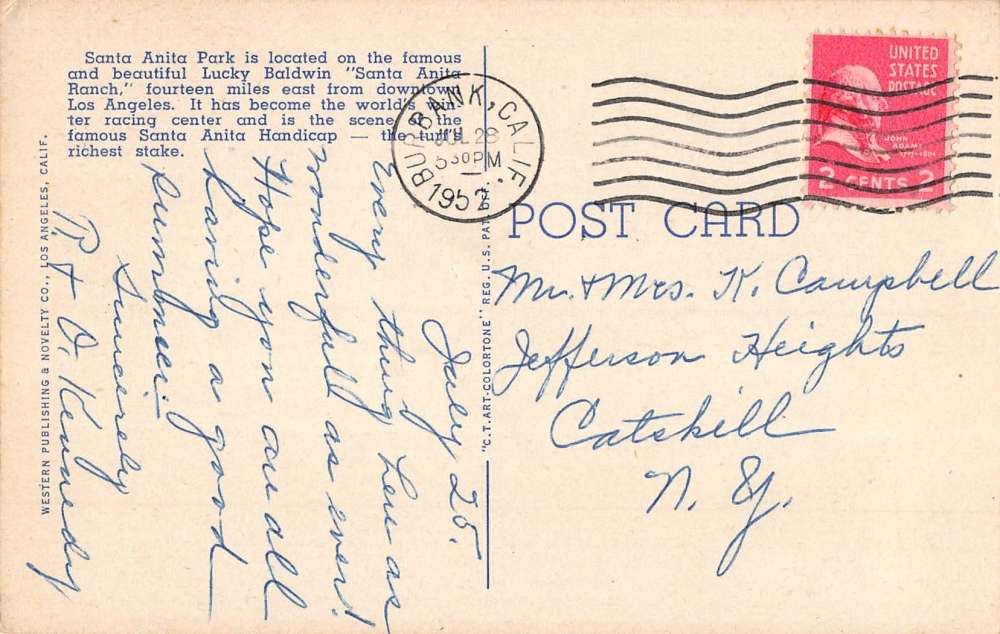 Santa Anita Park is located on the famous
and beautiful Lucky Baldwin "Santa Anita
Ranch," fourteen miles east from downtown
Los Angeles. It has become the world's win-
ter racing center and is the scene of the
famous Santa Anita Handicap — the turf's
richest stake.
WESTERN PUBLISHING & NOVELTY CO., LOS ANGELES, CALIF.
"C.T.ART-COLORTONE" REG. U.S. PAT.
BURBANK, CALIF.
JUL 28
5 30 PM
1952
UNITED
STATES
POSTAGE
JOHN
ADAMS
2 CENTS 2
POST CARD
July 25.
Every thing here as
wonderfull as ever!
Hope you are all
having a good
Summer.
Sincerely
P. & O. Kennedy
Mr. & Mrs. K. Campbell
Jefferson Heights
Catskill
N. Y.